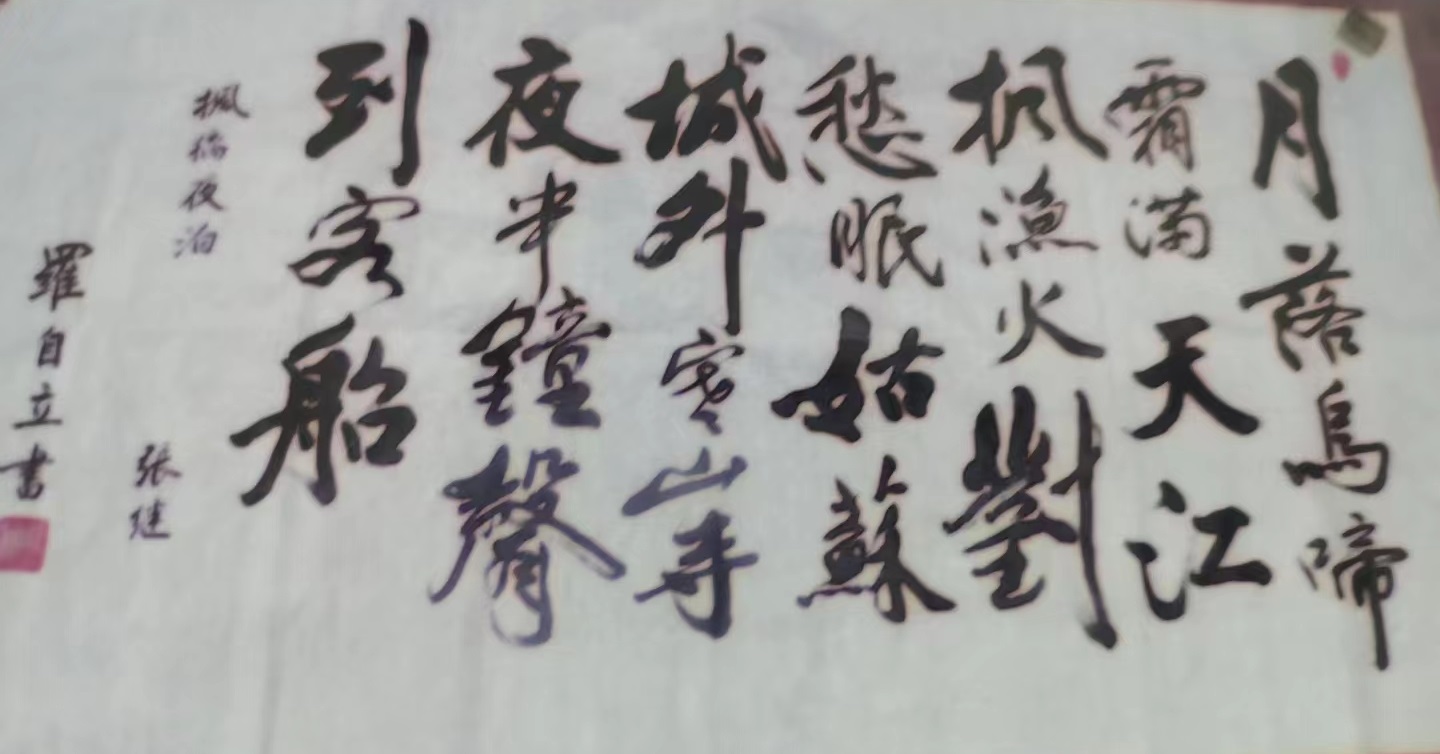 月落烏啼
霜满天江
枫渔火對
愁眠姑蘇
城外寒山寺
夜半鐘聲
到客船
楓橋夜泊
张继
羅自立書